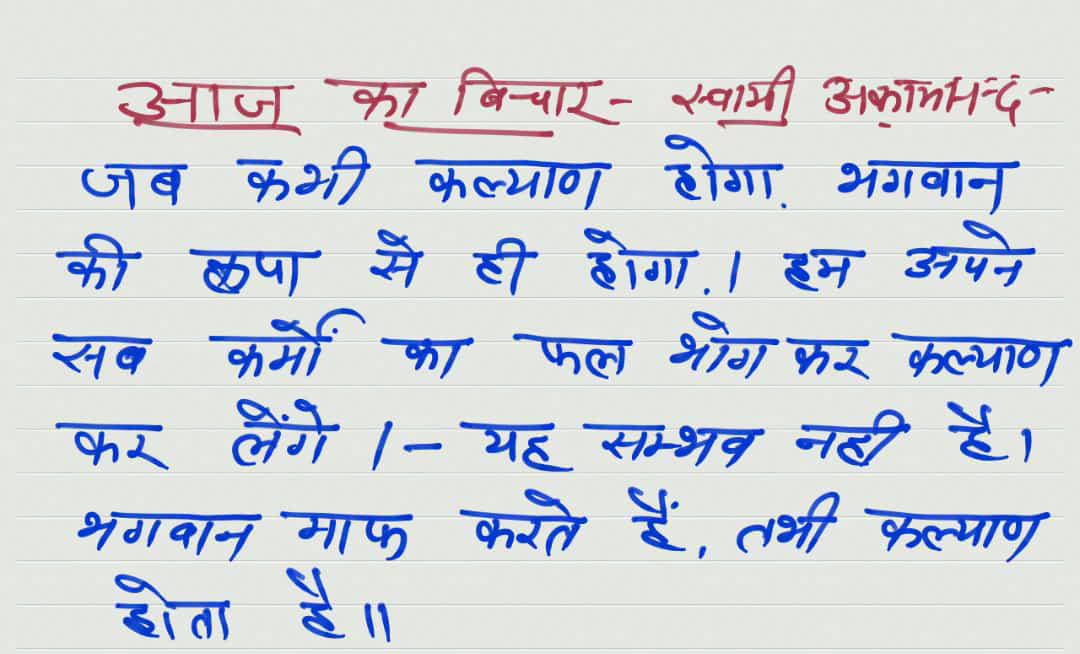 आज का बिचार- स्वामी अकामानन्द-
जब कभी कल्याण होगा. भगवान
की कृपा से ही होगा.। हम अपने
सब कर्मों का फल भोग कर कल्याण
कर लेंगे ।- यह सम्भव नही है।
भगवान माफ करते हैं, तभी कल्याण
होता है॥